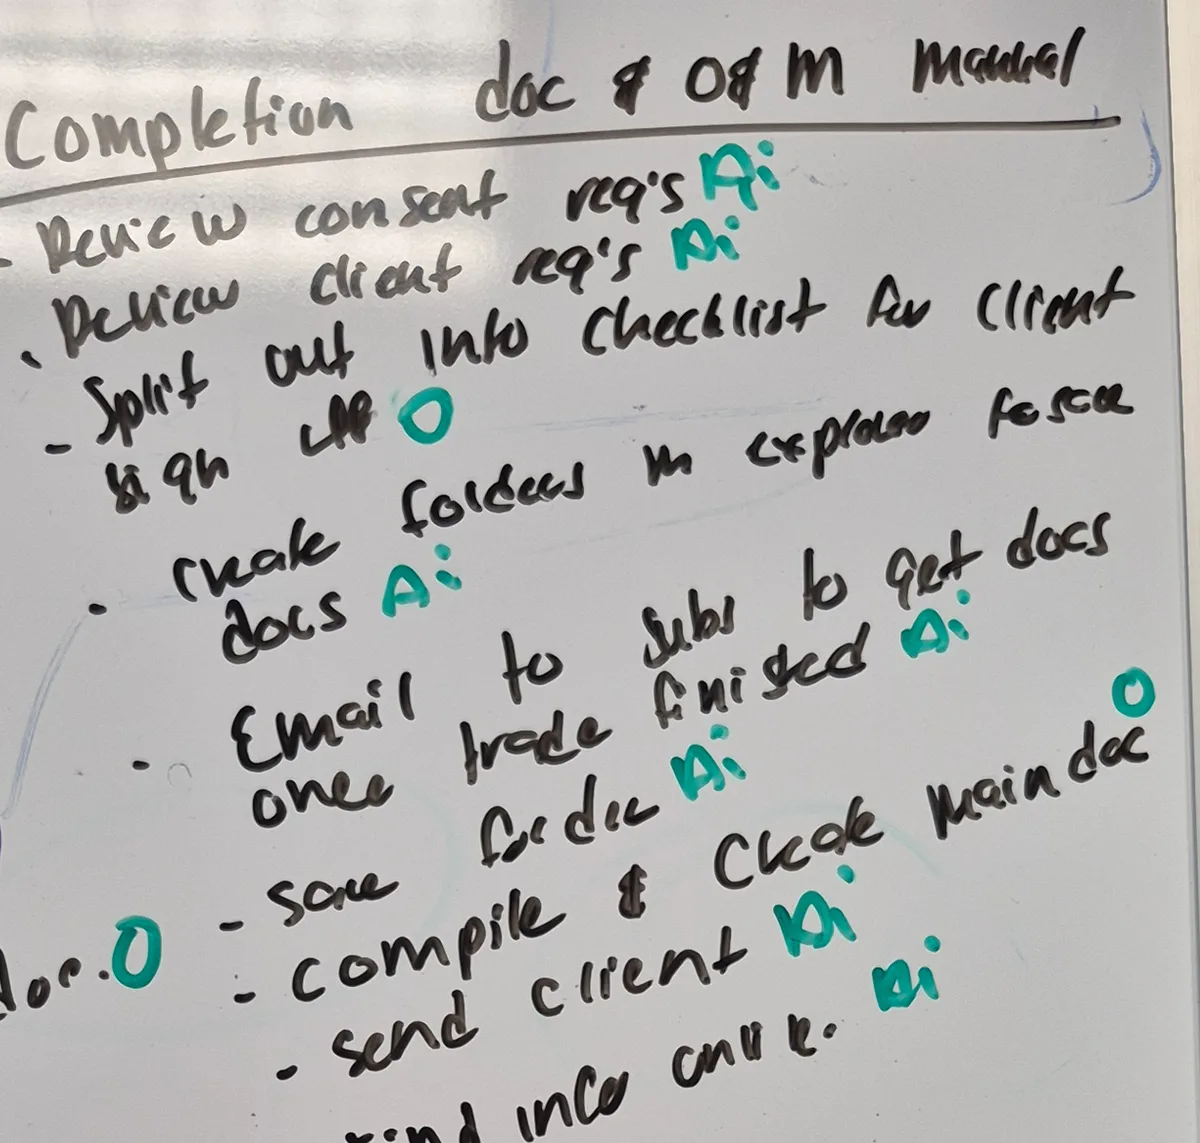 Completion doc & O&M manual
- Review consent req's Ai
- Review client req's Ai
- Split out into checklist for client
sign off O
- create folders in explorer to save
docs Ai
- Email to subs to get docs
once trade finished Ai
- save folder Ai
- compile & create main doc O
- send client Ai
doc. O
info Ai